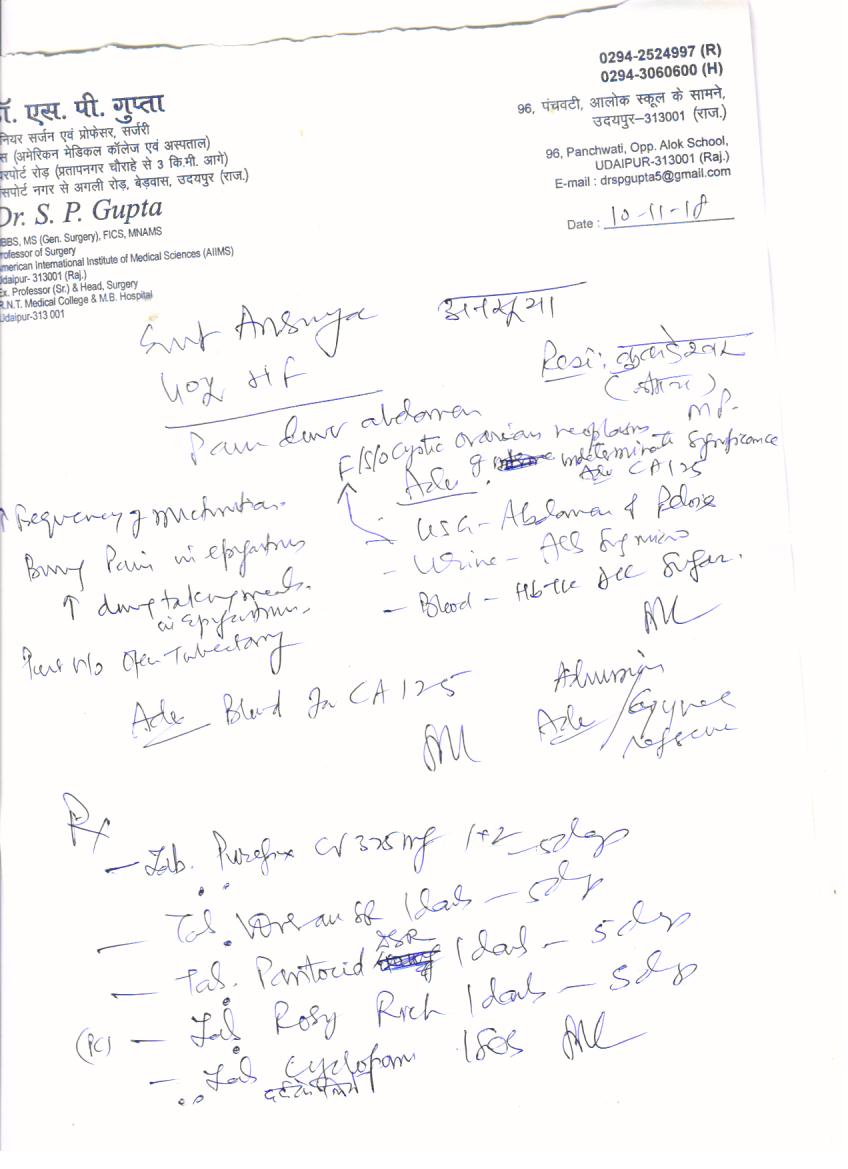 0294-2524997 (R)
0294-3060600 (H)
96, पंचवटी, आलोक स्कूल के सामने,
उदयपुर–313001 (राज.)
96, Panchwati, Opp. Alok School,
UDAIPUR-313001 (Raj.)
E-mail : drspgupta5@gmail.com
Date : 10-11-18
ॉ. एस. पी. गुप्ता
नियर सर्जन एवं प्रोफेसर, सर्जरी
स (अमेरिकन मेडिकल कॉलेज एवं अस्पताल)
रपोर्ट रोड़ (प्रतापनगर चौराहे से 3 कि.मी. आगे)
सपोर्ट नगर से अगली रोड़, बेड़वास, उदयपुर (राज.)
Dr. S. P. Gupta
BBS, MS (Gen. Surgery), FICS, MNAMS
rofessor of Surgery
merican International Institute of Medical Sciences (AIIMS)
Udaipur- 313001 (Raj.)
Ex. Professor (Sr.) & Head, Surgery
R.N.T. Medical College & M.B. Hospital
Udaipur-313 001
Smt Ansuya अनसूया
40y HF
Resi:
MP.
Pain lower abdomen
F/S/O Cystic ovarian neoplasm
of indeterminate significance
Adv CA 125
Adv
↑ Frequency of micturition
USG - Abdomen & Pelvis
Pain in epigastrium
- Urine - Alb Sug micro
↑ during taking meals
in epigastrium
- Blood - Hb TLC DLC Sugar.
Past H/O Open Tubectomy
Adv Blood for CA 125
Admission
Adv / Gynec
Rx
- Tab. CV 325mg 1+2 - 5 days
- Tab. SR 1 daily - 5 days
- Tab. Pantocid DSR 1 daily - 5 days
- Tab Rosy Rich 1 daily - 5 days
- Tab Cyclopam 1 SOS